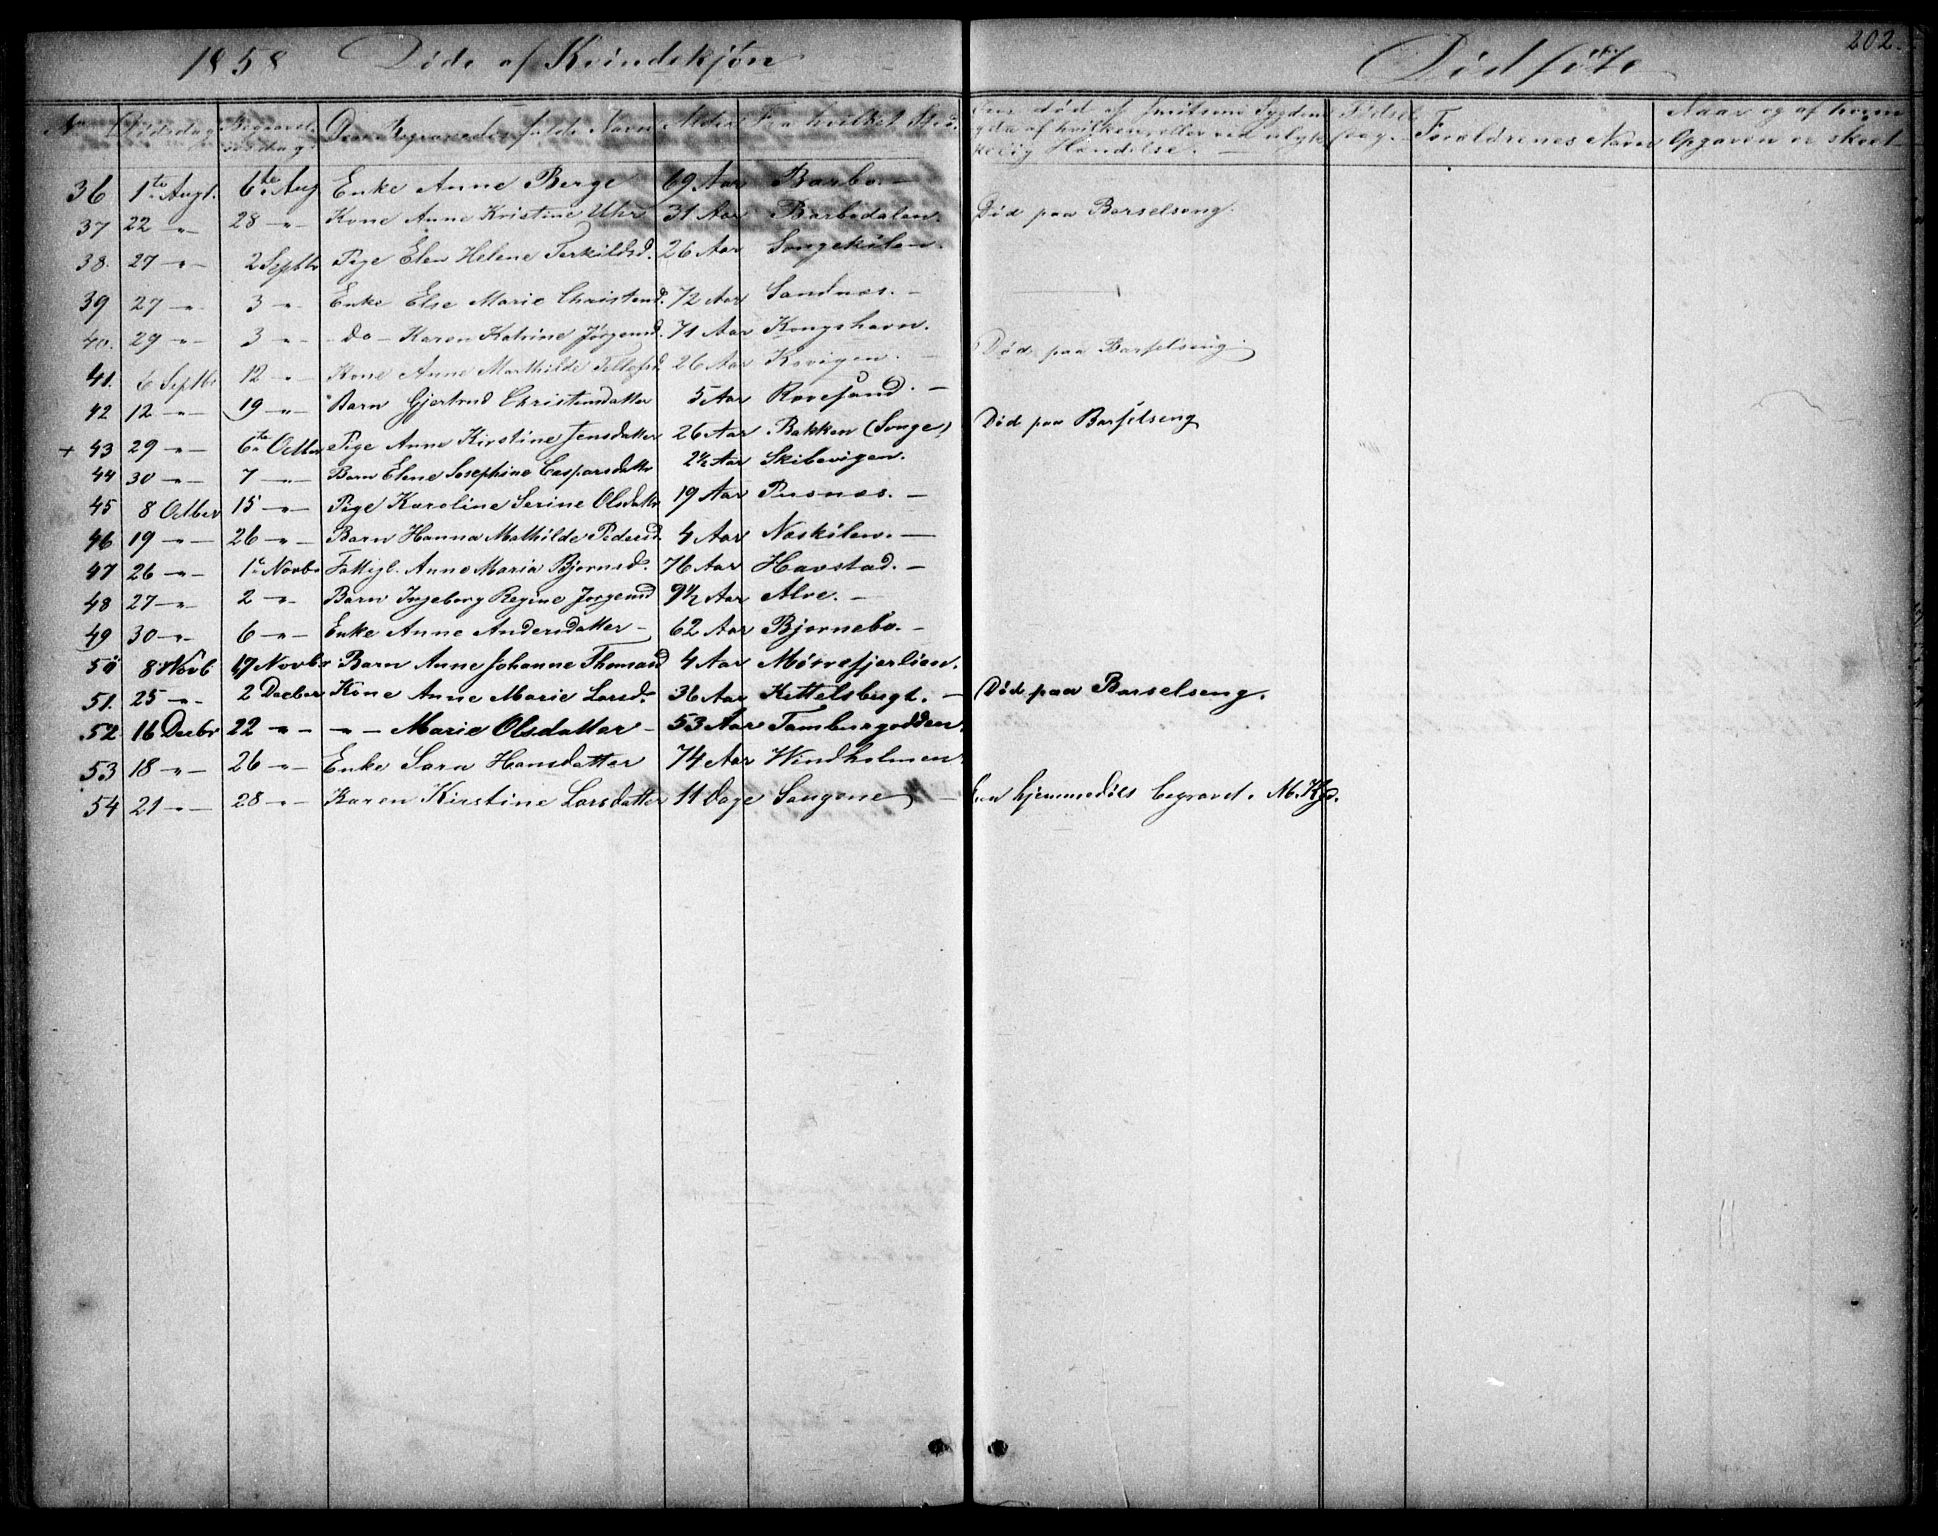 1858 Døde af Kvindekjøn Dødføte 202.
No Dødsdag Begravel-sesdag. Den Begravedes fulde Navn Alder Fra hvilket Sted.
død af smitsom Sygdom
af hvilken, eller ved ulyk-
kelig Hændelse. Fødsels dag. Forældrenes Navn Naar og af hvem
Opgaven er skeet
36 1te Augt. 6te Aug Enke Anne Berge 69 Aar Barbo. —
37 22 -"- 28 -"- Kone Anne Kristine Uhr 31 Aar Barbodalen. Død paa Barselseng.
38. 27 -"- 2 Septbr Pige Elen Helene Terkildsd. 26 Aar Songekilen.
39 27 -"- 3 -"- Enke Else Marie Christensd. 72 Aar Sandnæs. —
40. 29 -"- 3 -"- - do - Karen Katrine Jørgensd. 71 Aar Kongshavn.
41. 6 Septbr 12 -"- Kone Anne Mathilde Tellefsd 26 Aar Kovigen. — Død paa Barselseng.
42 12 -"- 19 -"- Barn Gjertrud Christensdatter 5 Aar Revesand. —
+ 43 29 -"- 6te Octber Pige Anne Kirstine Jensdatter 26 Aar Bakken (Songe) Død paa Barselseng
44 30 -"- 7 -"- Barn Elene Josephine Caspersdattr 2 1/2 Aar Skibevigen.
45 8 Octber 15 -"- Pige Karoline Serine Olsdattr 19 Aar Pusnæs. —
46 19 -"- 26 -"- Barn Hanna Mathilde Pedersd. 4 Aar Neskilen. —
47 26 -"- 1t Novbr Fattigl. Anne Maria Bjørnsd. 76 Aar Havstad. —
48 27 -"- 2 -"- Barn Ingeborg Regine Jørgensd 9 1/2 Aar Alve. —
49 30 -"- 6 -"- Enke Anne Andersdatter — 62 Aar Bjørnebo. —
50 8 Novb. 17 Novbr Barn Anne Johanne Thomasd 4 Aar Mørefjerlien.
51. 25 -"- 2 Decber Kone Anne Marie Larsd. 36 Aar Kittelsbugt. — Død paa Barselseng.
52. 16 Decbr 22 -"- -"- Marie Olsdatter — 53 Aar Tambursodden.
53 18 -"- 26 -"- Enke Sara Hansdatter 74 Aar Windholmen
54 21 -"- 28 -"- Karen Kirstine Larsdatter 11 Dage Sangene — Er hjemmedøbt begravet. M. Kfd.